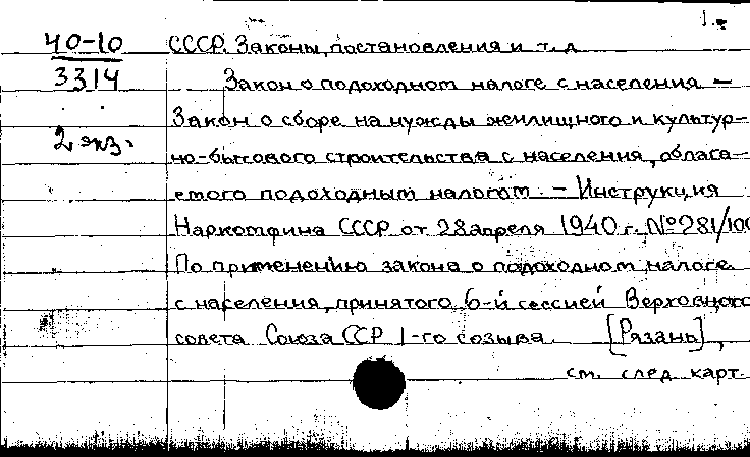 1.
40-10
3314
2 экз.
СССР. Законы, постановления и т. д
Закон о подоходном налоге с населения —
Закон о сборе на нужды жилищного и культур-
но-бытового строительства с населения, облага-
емого подоходным налогом. — Инструкция
Наркомфина СССР от 28 апреля 1940 г. №281/100
По применению закона о подоходном налоге
с населения, принятого 6-й сессией Верховного
совета Союза ССР 1-го созыва. [Рязань],
см. след. карт.